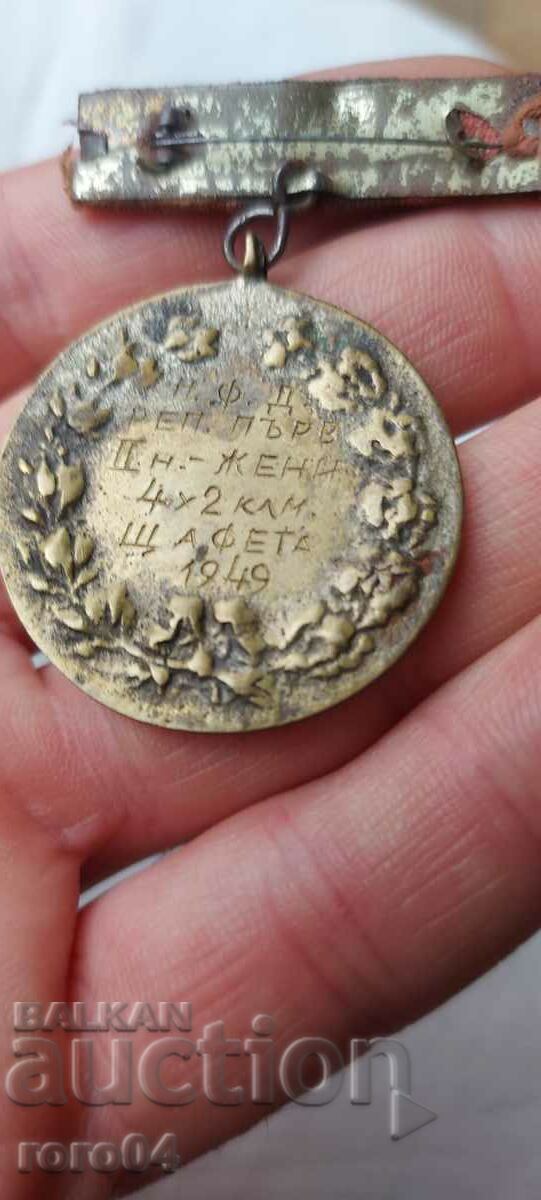 Н. Ф. Д.
РЕП. ПЪРВ
II н. - ЖЕНИ
4 х 2 КЛМ.
ЩАФЕТА
1949
BALKAN
auction
roro04